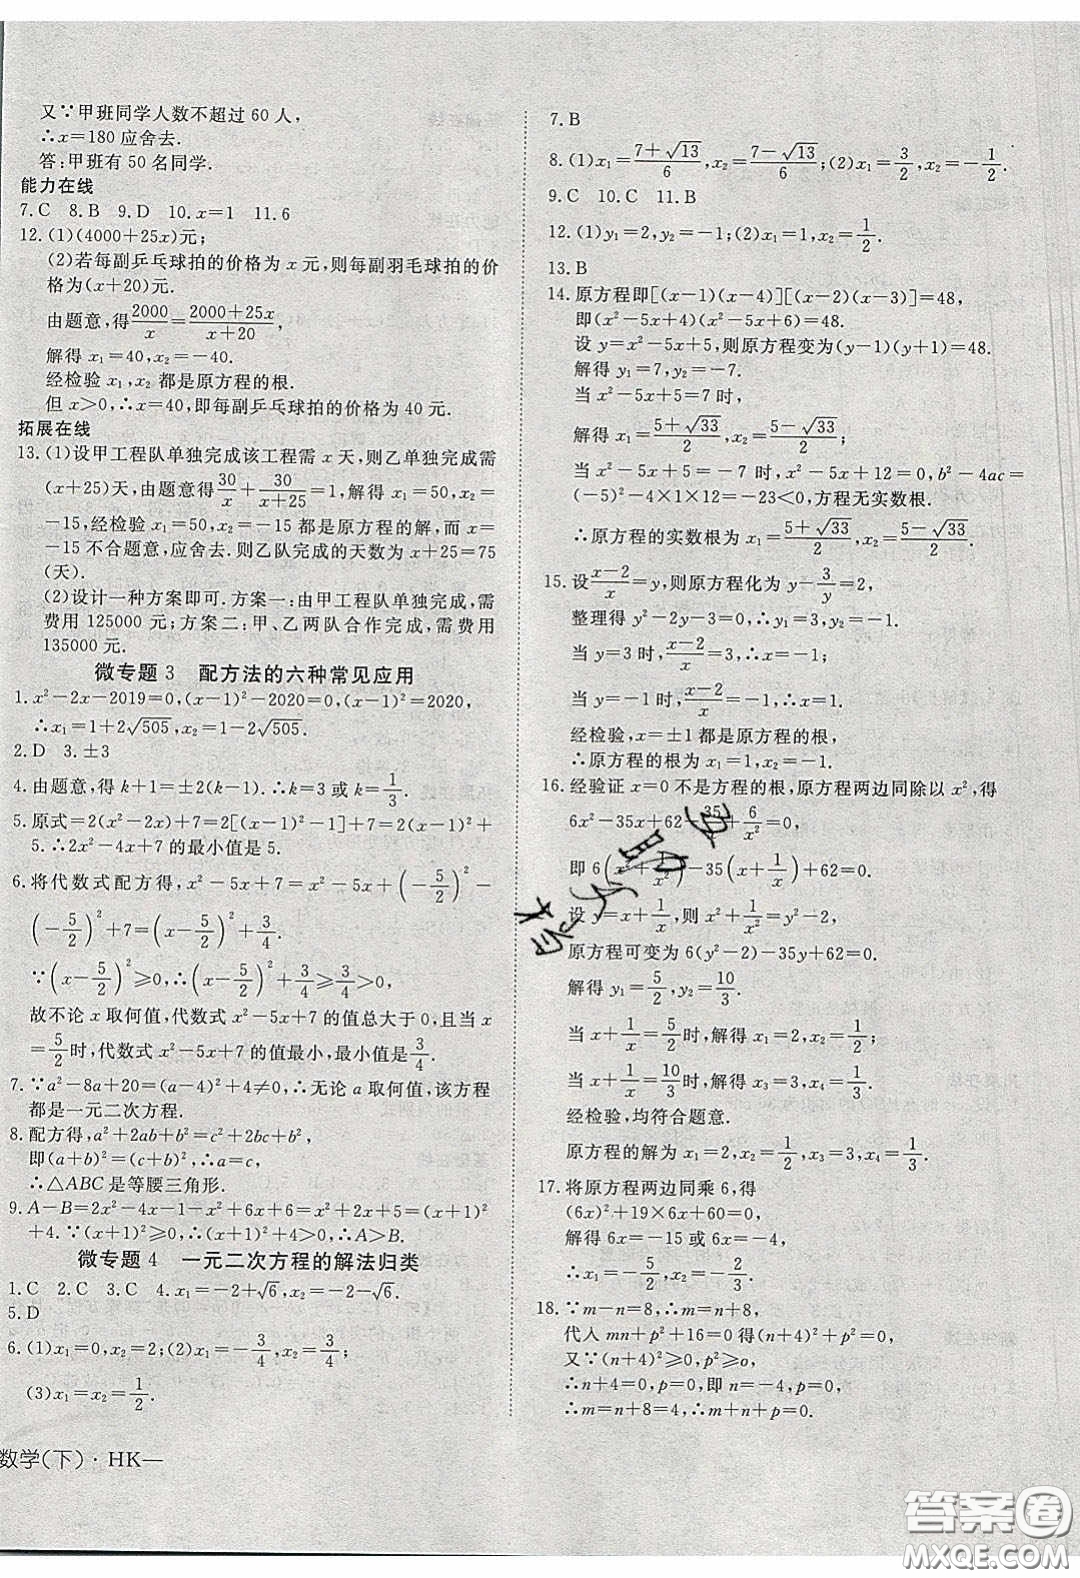 又∵甲班同学人数不超过 60 人,
∴x=180 应舍去.
答:甲班有 50 名同学.
能力在线
7.C 8.B 9.D 10.x=1 11.6
12.(1)(4000+25x)元;
(2)若每副乒乓球拍的价格为 x 元,则每副羽毛球拍的价
格为(x+20)元.
由题意,得2000/x=(2000+25x)/(x+20),
解得 x₁=40,x₂=-40.
经检验 x₁,x₂ 都是原方程的根.
但 x>0,∴x=40,即每副乒乓球拍的价格为 40 元.
拓展在线
13.(1)设甲工程队单独完成该工程需 x 天,则乙单独完成需
(x+25)天,由题意得30/x+30/(x+25)=1,解得 x₁=50,x₂=
-15,经检验 x₁=50,x₂=-15 都是原方程的解,而 x=
-15 不合题意,应舍去.则乙队完成的天数为 x+25=75
(天).
(2)设计一种方案即可.方案一:由甲工程队单独完成,需
费用 125000 元;方案二:甲、乙两队合作完成,需费用
135000元.
微专题 3 配方法的六种常见应用
1.x²-2x-2019=0,(x-1)²-2020=0,(x-1)²=2020,
∴x₁=1+2√505,x₂=1-2√505.
2.D 3.±3
4.由题意,得 k+1=±2(k-1).∴k=3或 k=1/3.
5.原式=2(x²-2x)+7=2[(x-1)²-1]+7=2(x-1)²+
5.∴2x²-4x+7 的最小值是 5.
6.将代数式配方得,x²-5x+7=x²-5x+(-5/2)²-
(-5/2)²+7=(x-5/2)²+3/4.
∵(x-5/2)²≥0,∴(x-5/2)²+3/4≥3/4>0.
故不论 x 取何值,代数式 x²-5x+7 的值总大于 0,当 x
=5/2时,代数式 x²-5x+7 的值最小,最小值是3/4.
7.∵a²-8a+20=(a-4)²+4≠0,∴无论 a 取何值,该方程
都是一元二次方程.
8.配方得,a²+2ab+b²=c²+2bc+b²,
即(a+b)²=(c+b)²,∴a=c,
∴△ABC 是等腰三角形.
9.A-B=2x²-4x-1-x²+6x+6=x²+2x+5=(x+1)²
+4.∵(x+1)²≥0,∴(x+1)²+4>0,∴A>B.
微专题 4 一元二次方程的解法归类
1.C 2.C 3.C 4.x₁=-2+√6,x₂=-2-√6.
5.D
6.(1)x₁=0,x₂=2;(2)x₁=-3/4,x₂=3/4;
(3)x₁=x₂=1/2.
数学(下)·HK—
7.B
8.(1)x₁=(7+√13)/6,x₂=(7-√13)/6;(2)x₁=3/2,x₂=-1/2.
9.C 10.C 11.B
12.(1)y₁=2,y₂=-1;(2)x₁=1,x₂=1/2.
13.B
14.原方程即[(x-1)(x-4)][(x-2)(x-3)]=48,
即(x²-5x+4)(x²-5x+6)=48.
设 y=x²-5x+5,则原方程变为(y-1)(y+1)=48.
解得 y₁=7,y=-7.
当 x²-5x+5=7 时,
解得 x₁=(5+√33)/2,x₂=(5-√33)/2;
当 x²-5x+5=-7 时,x²-5x+12=0,b²-4ac=
(-5)²-4×1×12=-23<0,方程无实数根.
∴原方程的实数根为 x₁=(5+√33)/2,x₂=(5-√33)/2.
15.设(x-2)/x=y,则原方程化为 y-3/y=2,
整理得 y²-2y-3=0,∴y₁=3,y₂=-1.
当 y=3 时,(x-2)/x=3,∴x=-1.
当 y=-1 时,(x-2)/x=-1,∴x=1.
经检验,x=±1 都是原方程的根,
∴原方程的根为 x₁=1,x₂=-1.
16.经验证 x=0 不是方程的根,原方程两边同除以 x²,得
6x²-35x+62-35/x+6/x²=0,
即 6(x²+1/x²)-35(x+1/x)+62=0.
设 y=x+1/x,则 x²+1/x²=y²-2,
原方程可变为 6(y²-2)-35y+62=0.
解得 y₁=5/2,y₂=10/3.
当 x+1/x=5/2时,解得 x₁=2,x₂=1/2;
当 x+1/x=10/3时,解得 x₃=3,x₄=1/3.
经检验,均符合题意.
原方程的解为 x₁=2,x₂=1/2,x₃=3,x₄=1/3.
17.将原方程两边同乘 6,得
(6x)²+19×6x+60=0,
解得 6x=-15 或 6x=-4.
∴x₁=-5/2,x₂=-2/3.
18.∵m-n=8,∴m=n+8,
代入 mn+p²+16=0 得(n+4)²+p²=0,
又∵(n+4)²≥0,p²≥o,
∴n+4=0,p=0,即 n=-4,p=0.
∴m=n+8=4,∴m+n+p=0.
答案圈
MXQE.COM